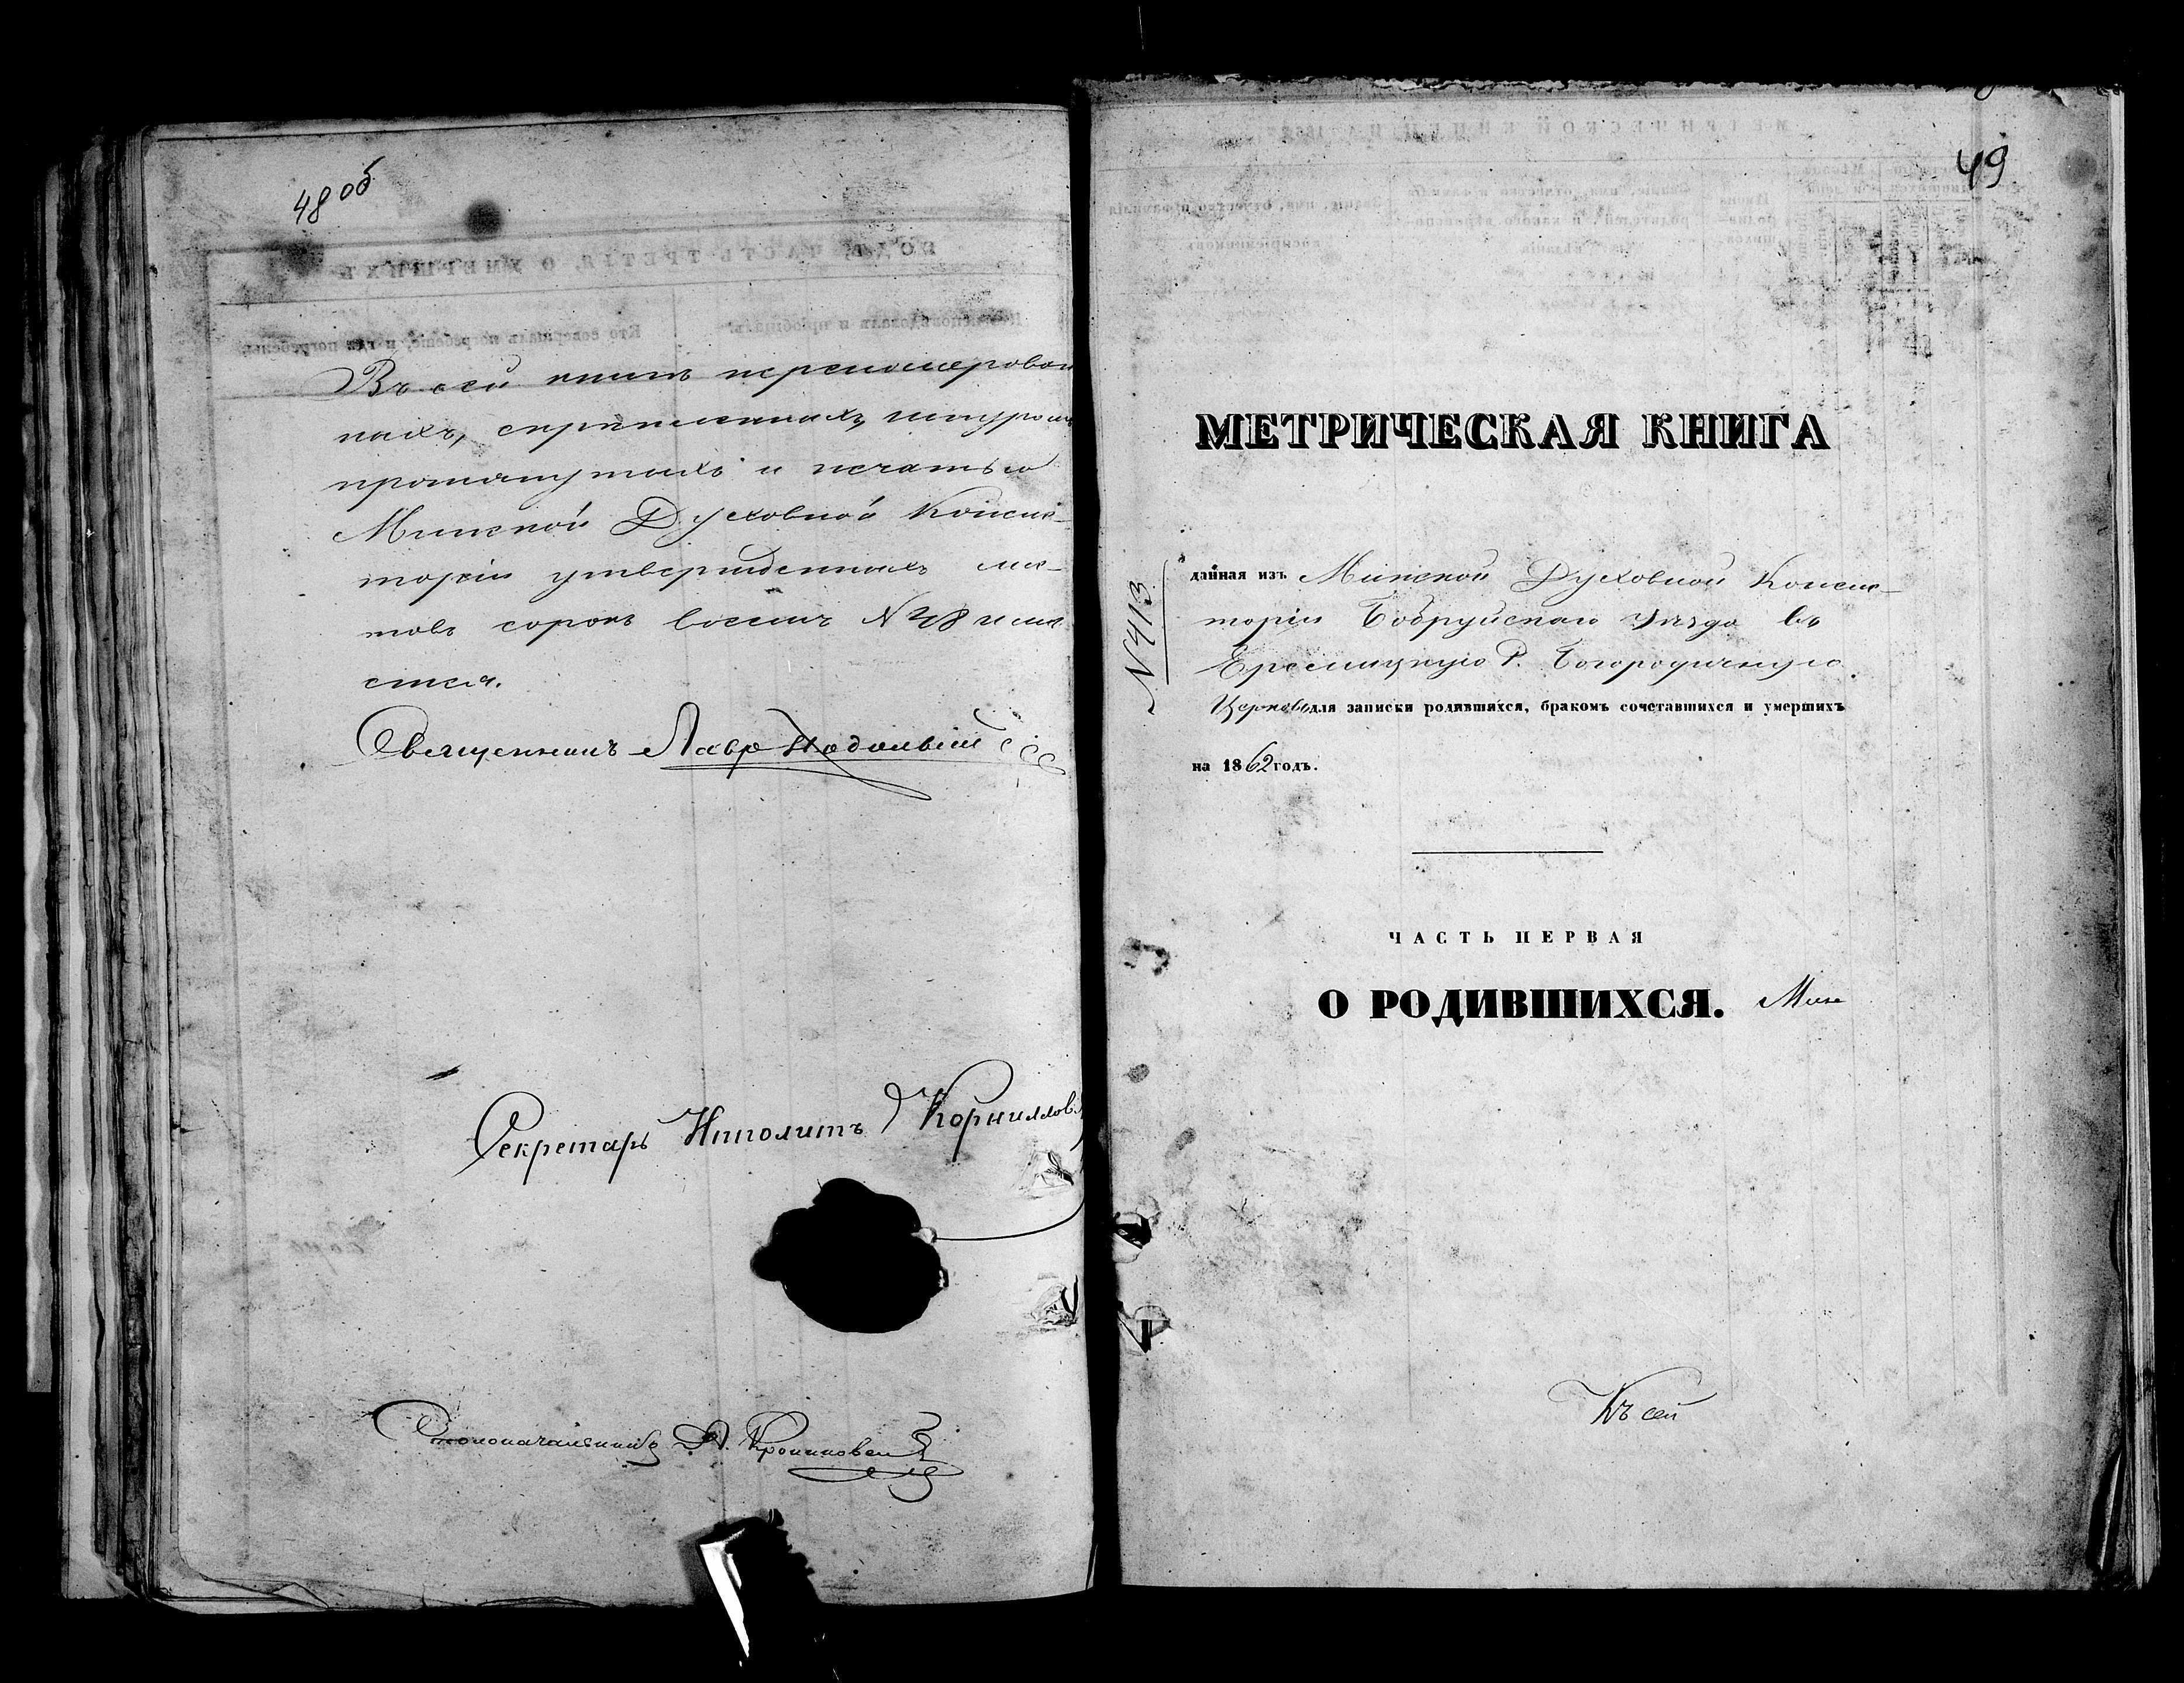 48 об
Въ сей книгѣ перенумерован
ныхъ, скрѣпленныхъ, шнуромъ
протянутыхъ и печатью
Минской Духовной Консис-
торіи утвержденныхъ лис-
товъ сорокъ восемь N 48 и ли
стъ.
Священникъ Лавръ
Секретарь Ипполитъ Корнилов
Столоначальникъ
49
МЕТРИЧЕСКАЯ КНИГА
N 413.
данная изъ Минской Духовной Консис-
торіи Бобруйскаго Уѣзда въ
Еремицкую Р. Богородичную
Церковь для записки родившихся, бракомъ сочетавшихся и умершихъ
на 1862 годъ.
ЧАСТЬ ПЕРВАЯ
О РОДИВШИХСЯ. Мин
Къ сей